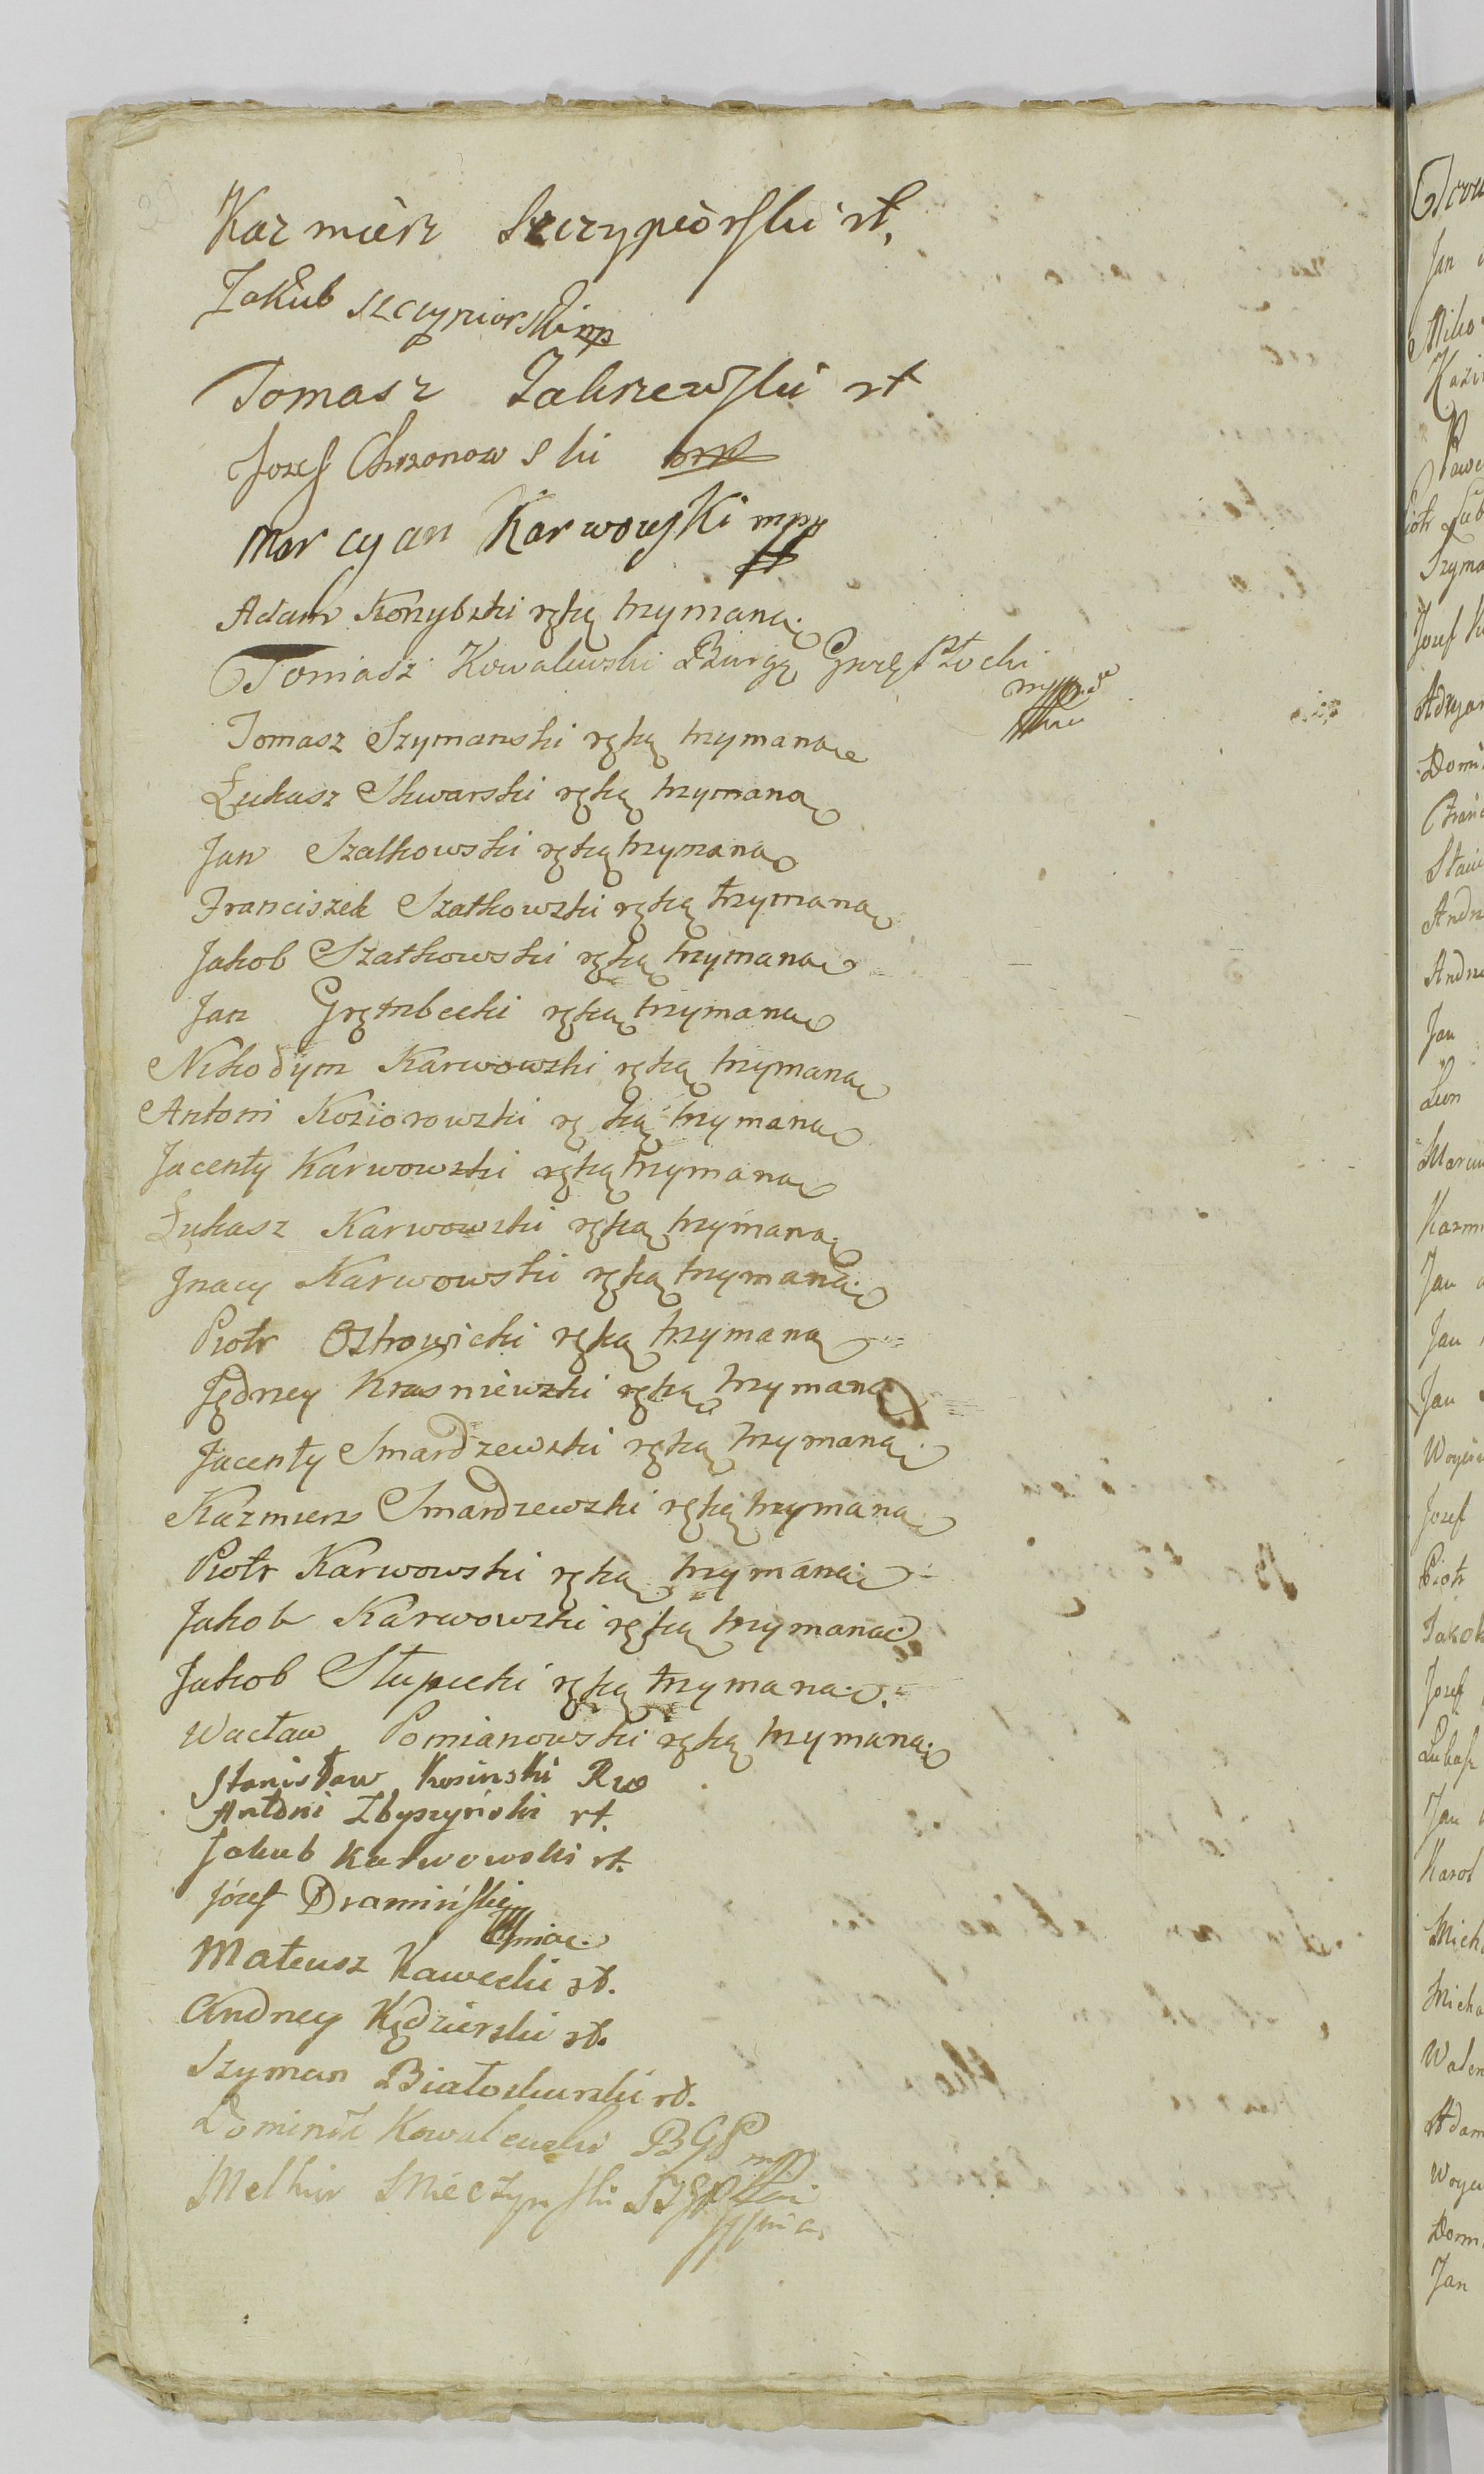 Kazmierz Szczypiorski rt,
Jakub Szczypiorski mp
Tomasz Zakrzewski rt
Jozef Chrzanowski mp
Marcyan Karwowski mpp
Adam Konybski ręką trzymaną
Tomasz Kowalewski Burgr Grdz Płocki
Tomasz Szymanski ręką trzymaną
Łukasz Skwarski ręką trzymaną
Jan Szatkowski ręką trzymaną
Franciszek Szatkowski ręką trzymaną
Jakob Szatkowski ręką trzymaną
Jan Grętnbecki ręką trzymaną
Nikodym Karwowski ręką trzymaną
Antoni Koziorowski ręką trzymaną
Jacenty Karwowski ręką trzymaną
Łukasz Karwowski ręką trzymaną
Jnacy Karwowski ręką trzymaną
Piotr Ostrowicki ręką trzymaną
Jędrzey Krasniewski ręką trzymaną
Jacenty Smardzewski ręką trzymaną
Kazmierz Smardzewski ręką trzymaną
Piotr Karwowski ręką trzymaną
Jakob Karwowski ręką trzymaną
Jakob Słupecki ręką trzymaną
Wacław Pomianowski ręką trzymaną
Stanisław Kosinski Rw
Antoni Zbyszyński rt.
Jakub Karwowski rt.
Józef Dramiński
Mateusz Kawecki rt.
Andrzey Kędzierski rt.
Szyman Białoskurski rt.
Dominik Kowalewski BGP mp
Melkior Mieczynski